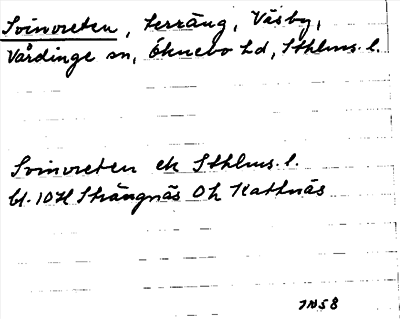 Svinvreten, terräng, Väsby,
Vårdinge sn, Öknebo hd, Sthlms. l.
Svinvreten ek Sthlms. l.
bl. 10H Strängnäs 0h Kattnäs
JN58